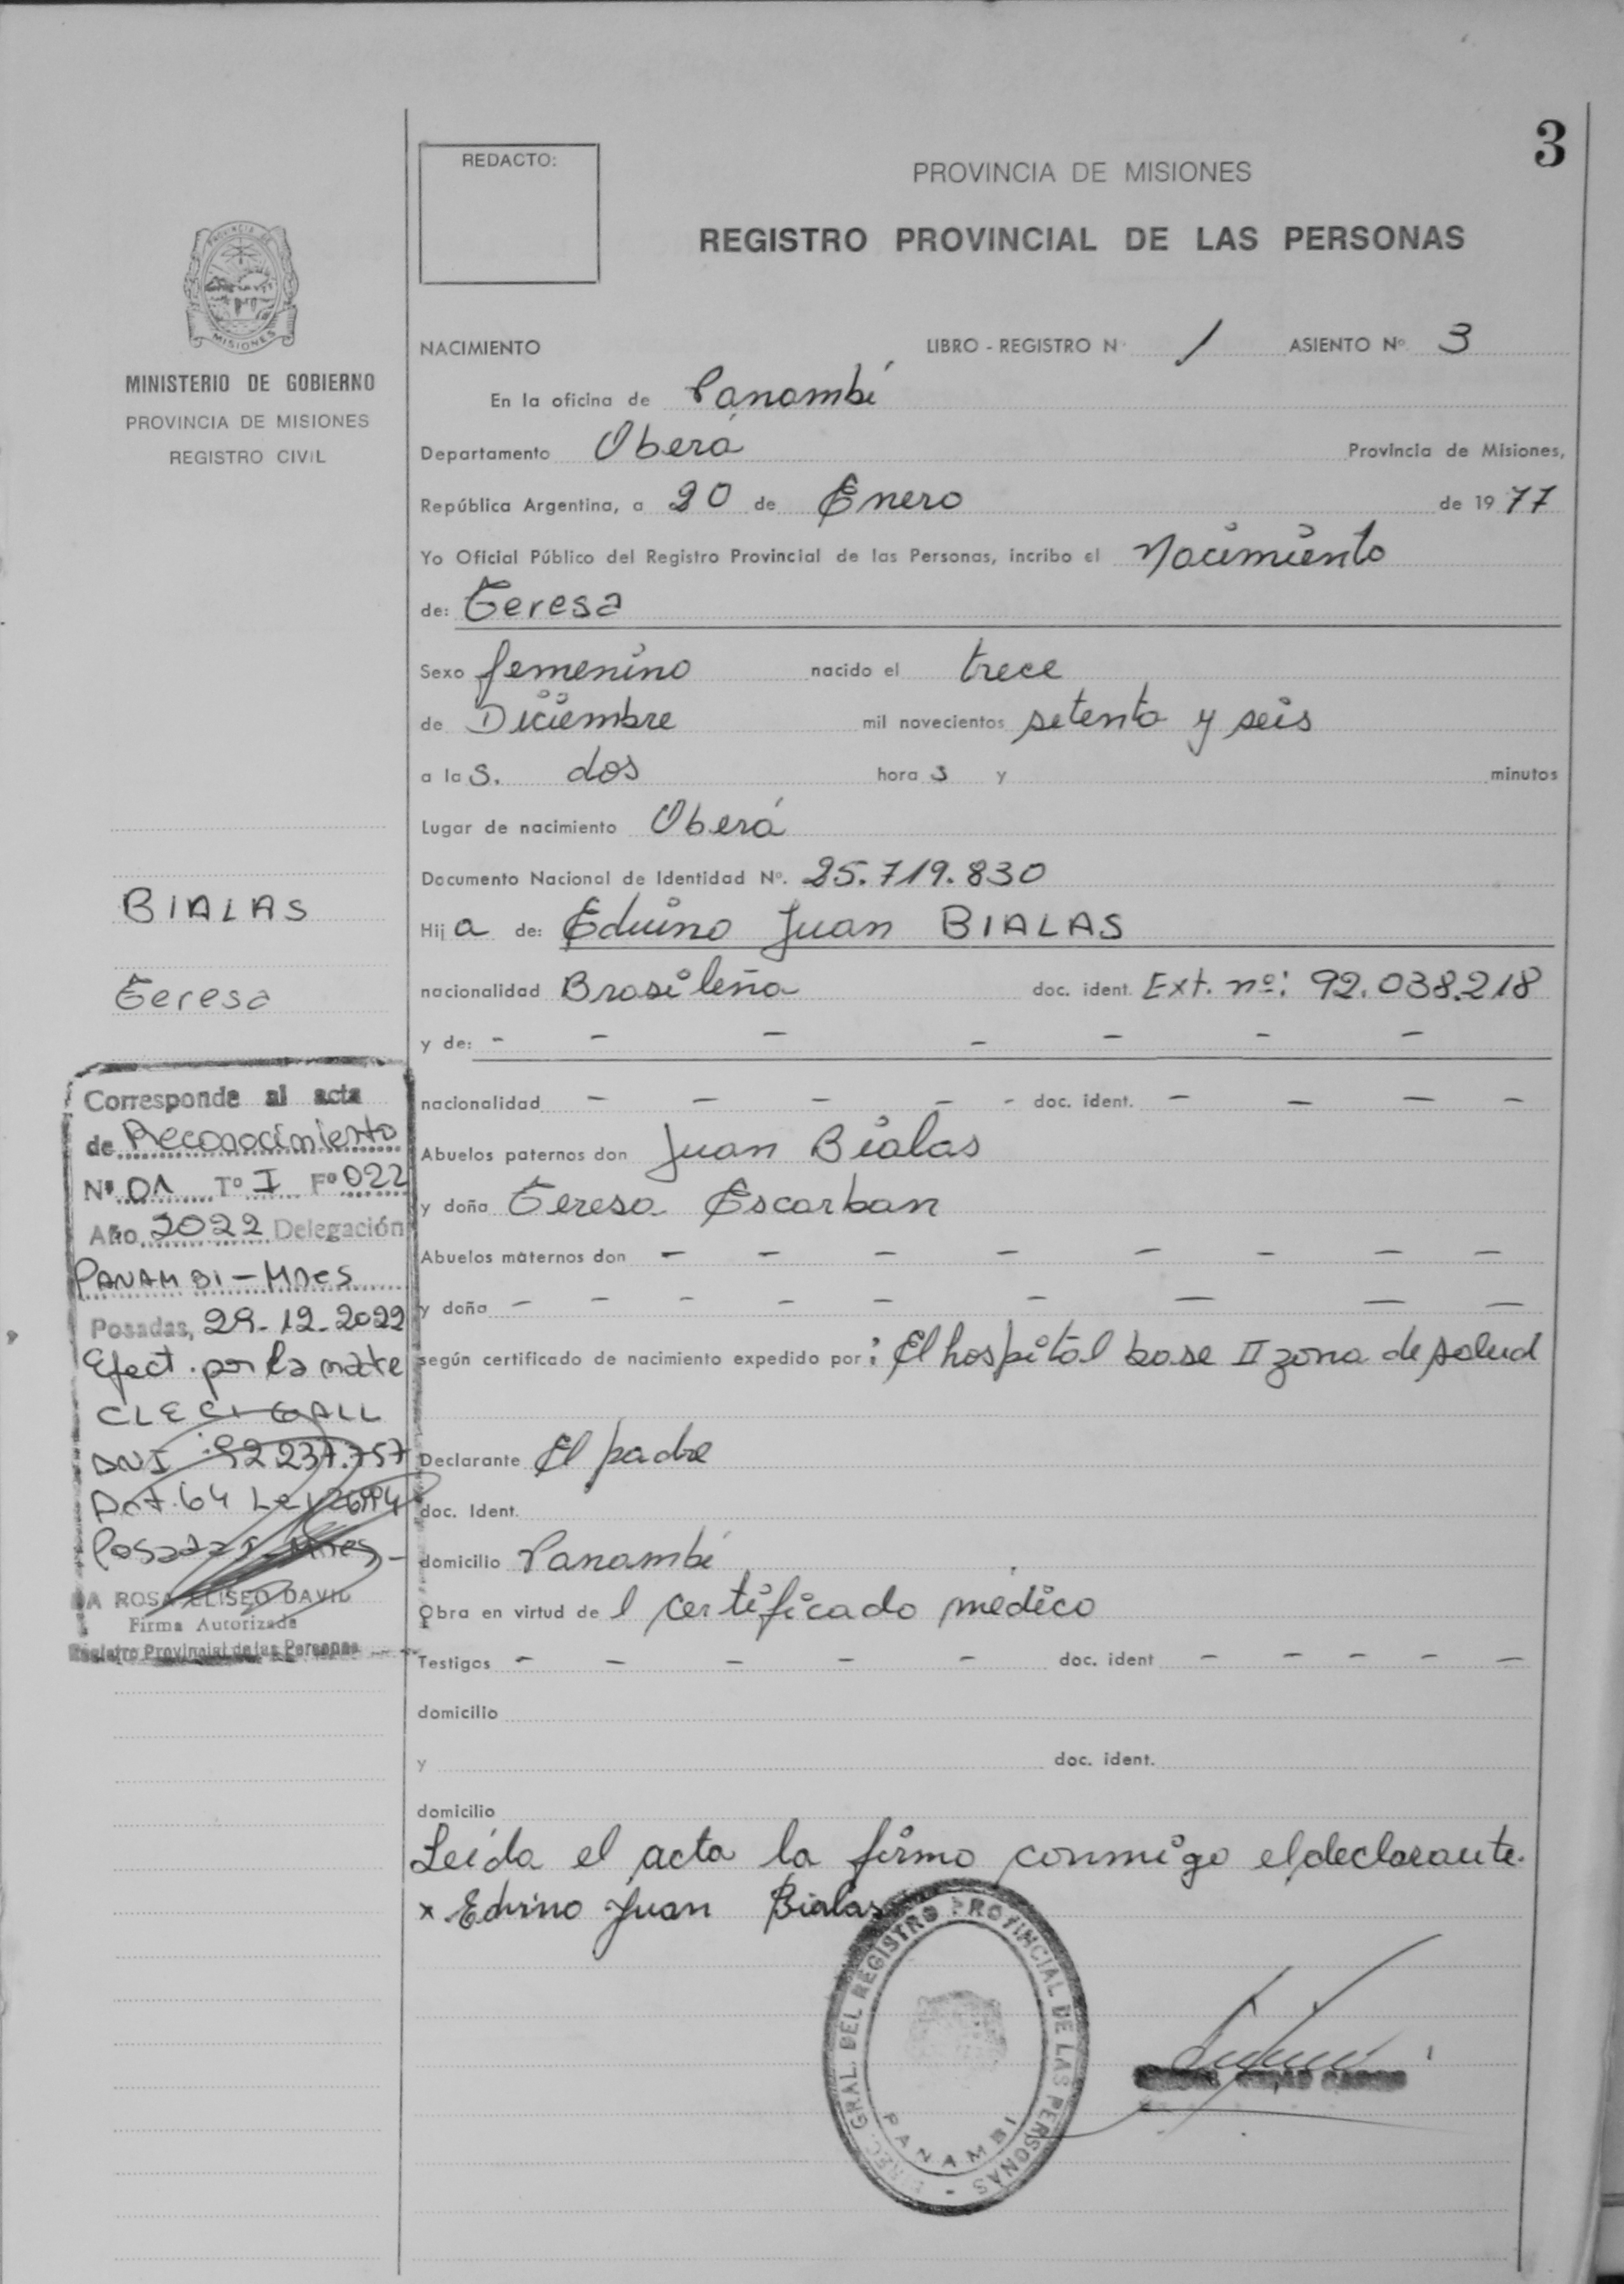 3
REDACTO:
PROVINCIA DE MISIONES
REGISTRO PROVINCIAL DE LAS PERSONAS
PROVINCIA DE MISIONES
MINISTERIO DE GOBIERNO
PROVINCIA DE MISIONES
REGISTRO CIVIL
NACIMIENTO LIBRO - REGISTRO N· 1 ASIENTO Nº 3
En la oficina de Panambí
Departamento Oberá Provincia de Misiones,
República Argentina, a 20 de Enero de 1977
Yo Oficial Público del Registro Provincial de las Personas, incribo el Nacimiento
de: Teresa
Sexo femenino nacido el trece
de Diciembre mil novecientos setenta y seis
a las. dos horas y minutos
Lugar de nacimiento Oberá
Documento Nacional de Identidad Nº. 25.719.830
BIALAS
Hija de: Eduino Juan BIALAS
Teresa
nacionalidad Brasileña doc. ident. Ext. nº: 92.038.218
y de: - - - - - - -
nacionalidad - - - - - doc. ident. - - - -
Abuelos paternos don Juan Bialas
y doña Teresa Escarban
Abuelos maternos don - - - - - - - -
y doña - - - - - - - - -
según certificado de nacimiento expedido por: El hospital base II zona de salud
Declarante El padre
doc. Ident.
domicilio Panambí
Obra en virtud del certificado médico
Testigos - - - - - doc. ident - - - - -
domicilio
y doc. ident.
domicilio
Leída el acta la firmo conmigo el declarante.
x Edvino Juan Bialas
Corresponde al acta
de Reconocimiento
Nº 01 Tº I Fº 022
Año 2022 Delegación
PANAMBI - Mnes
Posadas, 29-12-2022
Efect. por la mate
CLECI GALL
DNI: 92237.757
Art. 64 Ley 26994
Posadas - Mnes -
DA ROSA ELISEO DAVID
Firma Autorizada
Registro Provincial de las Personas
GRAL. DEL REGISTRO PROVINCIAL DE LAS PERSONAS -
PANAMBI